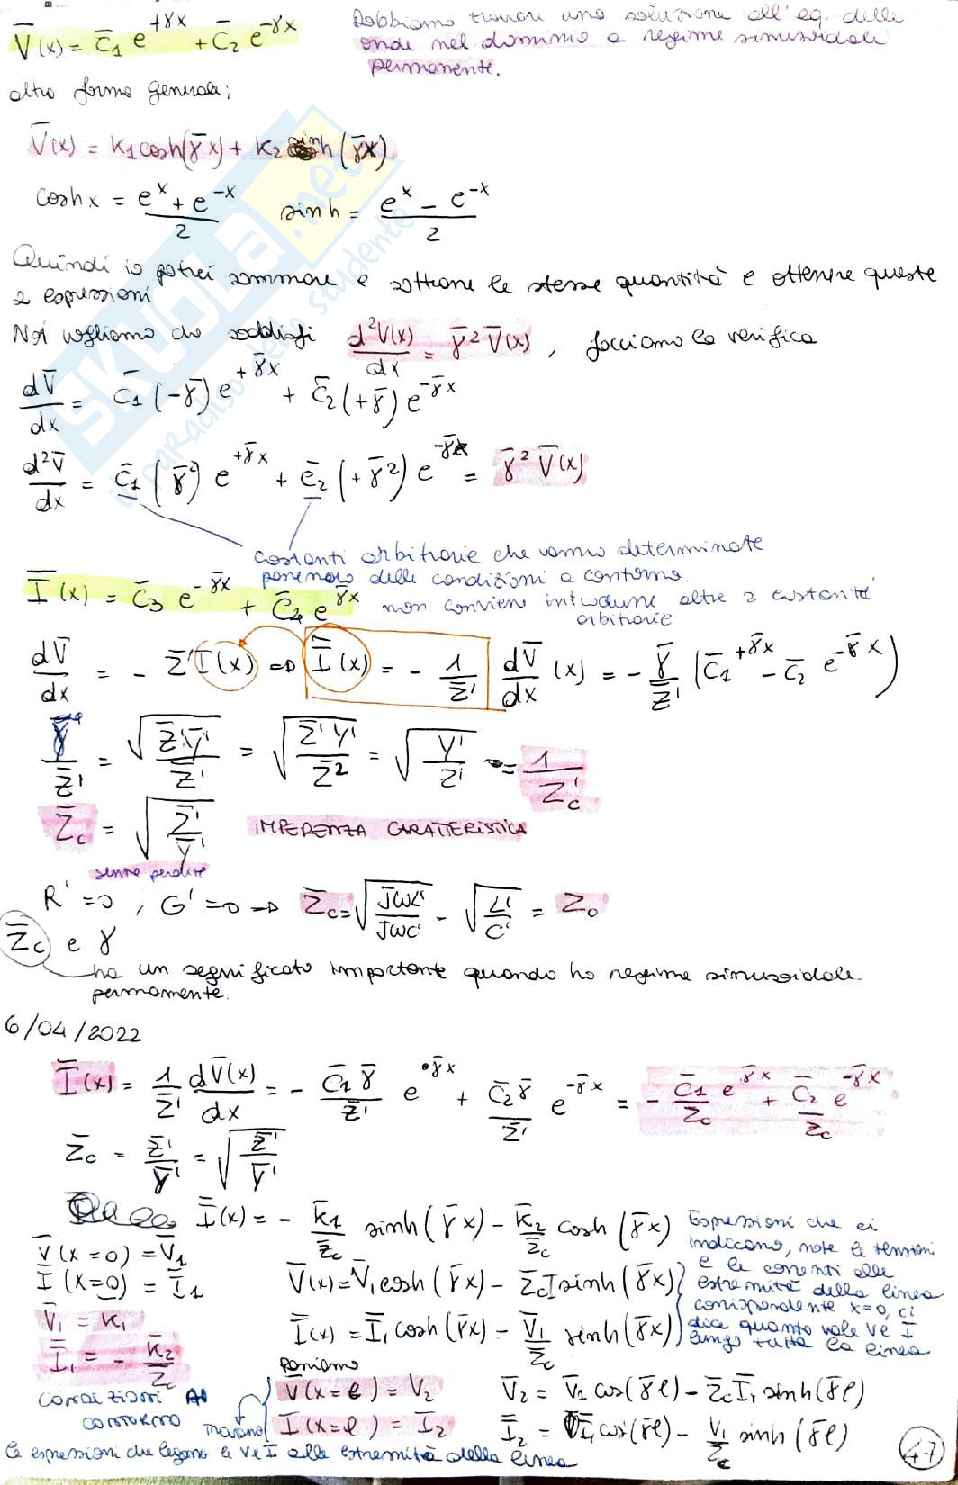 V̄(x) = C̄₁ e^{+γ̄x} + C̄₂ e^{-γ̄x}
Dobbiamo trovare una soluzione all'eq. delle
onde nel dominio a regime sinusoidale
permanente.
altra forma generale;
V̄(x) = K₁ cosh(γ̄x) + K₂ sinh(γ̄x)
cosh x = (e^x + e^{-x})/2    sinh = (e^x - e^{-x})/2
Quindi io potrei sommare e sottrarre le stesse quantità e ottenere queste
2 espressioni
Noi vogliamo che soddisfi d²V(x)/dx = γ̄² V̄(x), facciamo la verifica
dV̄/dx = C̄₁(-γ̄) e^{+γ̄x} + C̄₂(+γ̄) e^{-γ̄x}
d²V̄/dx = C̄₁(γ̄²) e^{+γ̄x} + C̄₂(+γ̄²) e^{-γ̄x} = γ̄² V̄(x)
costanti arbitrarie che vanno determinate
ponendo delle condizioni a contorno
Ī(x) = C̄₃ e^{-γ̄x} + C̄₄ e^{γ̄x}
non conviene introdurre altre 2 costanti
arbitrarie
dV̄/dx = - Z̄' Ī(x) => Ī(x) = - 1/Z̄' dV̄/dx (x) = - γ̄/Z̄' (C̄₁^{+γ̄x} - C̄₂ e^{-γ̄x})
γ̄/Z̄' = √(Z̄'Ȳ')/Z̄' = √(Z̄'Y'/Z̄²) = √(Y'/Z') = 1/Z̄'c
Z̄c = √(Z̄'/Ȳ')   IMPEDENZA CARATTERISTICA
senza perdite
R' = 0, G' = 0 => Z̄c = √(jωL'/jωC') - √(L'/C') = Z₀
Z̄c e γ̄
ha un significato importante quando ho regime sinusoidale
permanente.
6/04/2022
Ī(x) = 1/Z̄' dV̄(x)/dx = - C̄₁γ̄/Z̄' e^{γ̄x} + C̄₂γ̄/Z̄' e^{-γ̄x} = - C̄₁/Z̄c e^{γ̄x} + C̄₂/Z̄c e^{-γ̄x}
Z̄c = Z̄'/γ̄' = √(Z̄'/Ȳ')
Ī(x) = - K̄₁/Z̄c sinh(γ̄x) - K̄₂/Z̄c cosh(γ̄x)
V̄(x=0) = V̄₁
Ī(x=0) = Ī₁
V̄₁ = K₁
Ī₁ = - K₂/Z̄c
CONDIZIONI AL
CONTORNO
V̄(x) = V̄₁ cosh(γ̄x) - Z̄c I sinh(γ̄x)
Ī(x) = Ī₁ cosh(γ̄x) - V̄₁/Z̄c sinh(γ̄x)
Espressioni che ci
indicano, note le tensioni
e le correnti alle
estremità della linea
corrispondente x=0, ci
dice quanto vale V e I
lungo tutta la linea
poniamo
V̄(x=ℓ) = V₂
Ī(x=ℓ) = Ī₂
V̄₂ = V₁ cos(γ̄ℓ) - Z̄c Ī₁ sinh(γ̄ℓ)
Ī₂ = Ī₁ cos(γ̄ℓ) - V₁/Z̄c sinh(γ̄ℓ)
troviamo
le espressioni che legano le V e I alle estremità della linea
47
SKUOLA.net
il paradiso dello studente